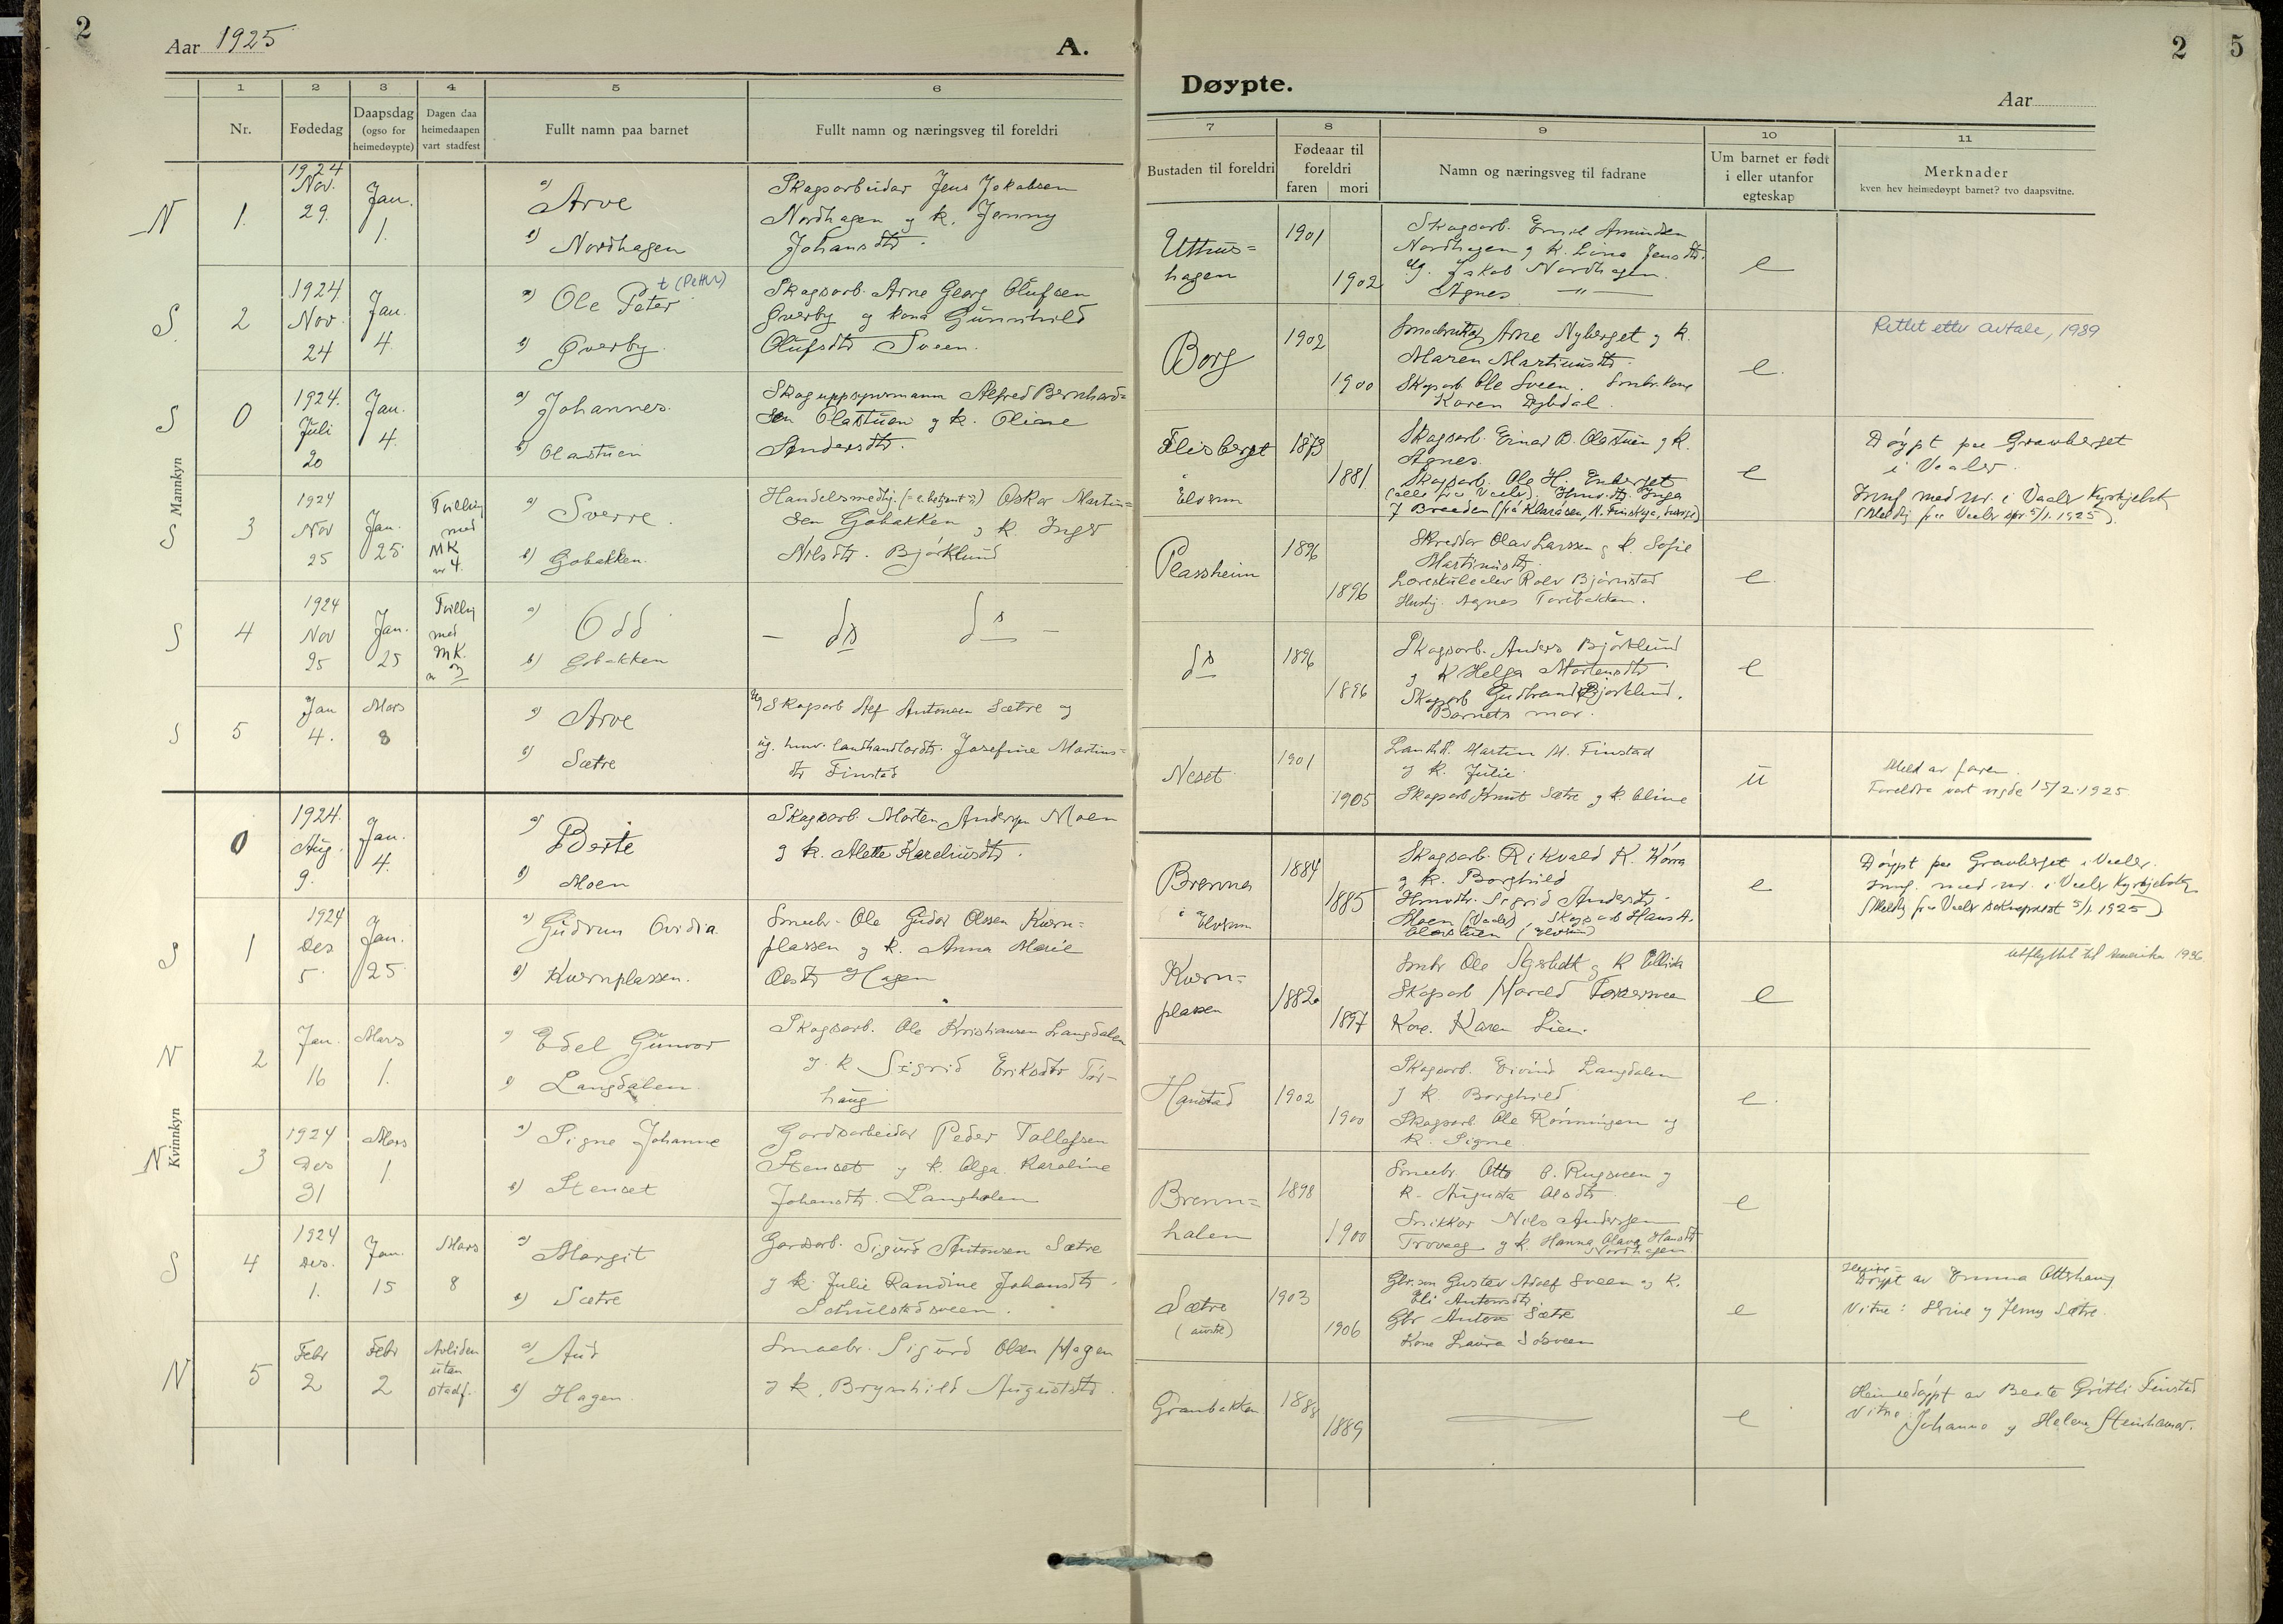 2
Aar 1925
A.
1
2
3
4
5
6
Nr.
Fødedag
Daapsdag
(ogso for
heimedøypte)
Dagen daa
heimedaapen
vart stadfest
Fullt namn paa barnet
Fullt namn og næringsveg til foreldri
Mannkyn
N
1.
1924
Nov.
29.
Jan.
1.
a) Arve
b) Nordhagen
Skogsarbeidar Jens Jakobsen
Nordhagen og k. Jenny
Johansdtr.
S
2
1924
Nov.
24
Jan.
4.
t (Petter)
a) Ole Peter
b) Øverby.
Skogsarb. Arne Georg Olufsen
Øverby og kona Gunnhild
Olufsdtr Sveen.
S
0
1924.
Juli
20
Jan.
4.
a) Johannes.
b) Olastuen
Skoguppsynsmann Alfred Bernhard=
sen Olastuen og k. Oliane
Andersdtr.
S
3
1924
Nov
25
Jan.
25
Tvilling
med
MK
nr 4.
a) Sverre.
b) Gobakken.
Oskar Martin=
sen Gobakken og k. Inger
Nilsdtr. Björklund
S
4
1924
Nov
25
Jan.
25
Tvilling
med
MK.
nr 3
a) Odd
b) Gobakken
— ds ds —
S
5
Jan
4.
Mars
8
a) Arve
b) Sætre
Ug Skogsarb Alf Antonsen Sætre og
ug. hmv. landhandlardtr. Josefine Martins=
dtr Finstad
Kvinnkyn
0
1924.
Aug.
9.
Jan.
4.
a) Berte
b) Moen
Skogsarb. Morten Andersen Moen
og k. Mette Kareliusdtr.
S
1
1924
Des
5.
Jan.
25
a) Gudrun Ovidia
b) Kvernplassen.
Smaabr. Ole Gudar Olsen Kvern=
plassen og k. Anna Marie
Olsdtr Hagen
N
2
Jan.
16
Mars
1.
a) Edel Gunvor
b) Langdalen.
Skogsarb. Ole Kristiansen Langdalen
og k Sigrid Eriksdtr Tor-
haug
N
3
1924
Des
31
Mars
1
a) Signe Johanne
b) Stenset
Gardsarbeidar Peder Tollefsen
Stenset og k. Olga Karoline
Johansdtr. Langholen
S
4
1924
Des.
1.
Jan.
15
Mars
8
a) Margit
b) Sætre
Gardsarb. Sigurd Antonsen Sætre
og k. Julie Randine Johansdtr.
N
5
Febr
2
Febr
2
Avliden
utan
stadf.
a) Aud
b) Hagen.
Smaabr. Sigurd Olsen Hagen
og k. Brynhild Augustdtr.
Døypte.
2
5
Aar
7
8
9
10
11
Bustaden til foreldri
Fødeaar til
foreldri
faren
mori
Namn og næringsveg til fadrane
Um barnet er født
i eller utanfor
egteskap
Merknader
kven hev heimedøypt barnet? tvo daapsvitne.
Uthus=
hagen
1901
1902
Skogsarb. Emil Amundsen
Nordhagen og k. Lina Jensdtr.
Ug. Jakob Nordhagen.
Agnes —"—
e
Borg
1902
1900
Smaabrukar Arne Nyberget og k.
Maren Martinusdtr.
Skogsarb. Ole Sveen. Smbr.kone
Karen Dybdal.
e.
Rettet etter avtale, 1989
Flisberget
i
Elverum
1873
1881
Skogsarb. Einar B. Olastuen og k.
Agnes.
Skogsarb. Ole H. Enberget
e
Døypt paa Gravberget
i Vaaler.
Innf med nr. i Vaaler Kyrkjebok
Plassheim
1896
1896
Skreddar Olav Larsen og k. Sofie
Martinusdtr.
Læreskuleelev Rolv Bjørnstad
Hushj. Agnes Torebakken.
e.
ds
1896
1896
Skogsarb. Anders Björklund
og k Helga Mortensdtr.
Skogsarb Gudbrand Bjørklund.
Barnets mor.
e
Neset
1901
1905
Landh. Martin M. Finstad
og k. Julie
Skogsarb Knut Sætre og k. Oline
u
Meld av faren.
Foreldra vart vigde 15/2.1925
Brenna
i
Elverum
1884
1885
Skogsarb. Rikvald K. Horra
og k. Borghild
Hmvdtr. Sigrid Andersdtr.
Moen (Vaaler), Skogsarb Hans A.
Olastuen (Elverum)
e
Døypt paa Gravberget i Vaaler.
Innf. med nr. i Vaaler Kyrkjebok
(Meldg fraa Vaaler sokneprest 5/1.1925)
Kvern=
plassen
1882
1897
Skogsarb Harald
Kone. Karen Lien.
e
utflyttet til Amerika 1926
Hanstad
1902
1900
Skogsarb. Eivind Langdalen
og k Borghild
Skogsarb Ole Rønningen og
k. Signe.
e.
Brenn=
halen
1898
1900
Smaabr. Otto O. Rugsveen og
k. Augusta Olsdtr.
Snikkar Nils Andersen
e
Sætre
(austre)
1903
1906
Gbr.son Gustav Adolf Sveen og k.
Eli Antonsdtr.
Gbr Anton Sætre
Kone Laura
e
Heime=
døypt av Emma Ottshaug
Vitne: Stine og Jenny Sætre
Granbakken
1888
1889
e
Heimedøypt av Beate Gritli Finstad
Vitne: Johanne og Helene Steinhamar.